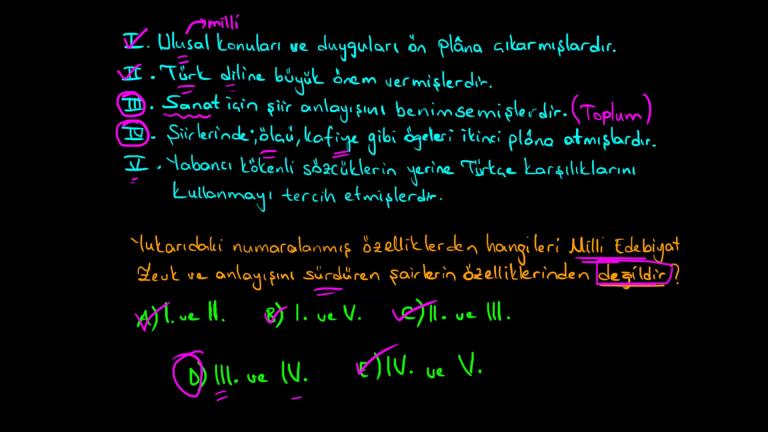 milli
I. Ulusal konuları ve duyguları ön plâna çıkarmışlardır.
II. Türk diline büyük önem vermişlerdir.
III. Sanat için şiir anlayışını benimsemişlerdir. (Toplum)
IV. Şiirlerinde; ölçü, kafiye gibi ögeleri ikinci plâna atmışlardır.
V. Yabancı kökenli sözcüklerin yerine Türkçe karşılıklarını
kullanmayı tercih etmişlerdir.
Yukarıdaki numaralanmış özelliklerden hangileri Milli Edebiyat
Zevk ve anlayışını sürdüren şairlerin özelliklerinden değildir?
A) I. ve II. B) I. ve V. C) II. ve III.
D) III. ve IV. E) IV. ve V.